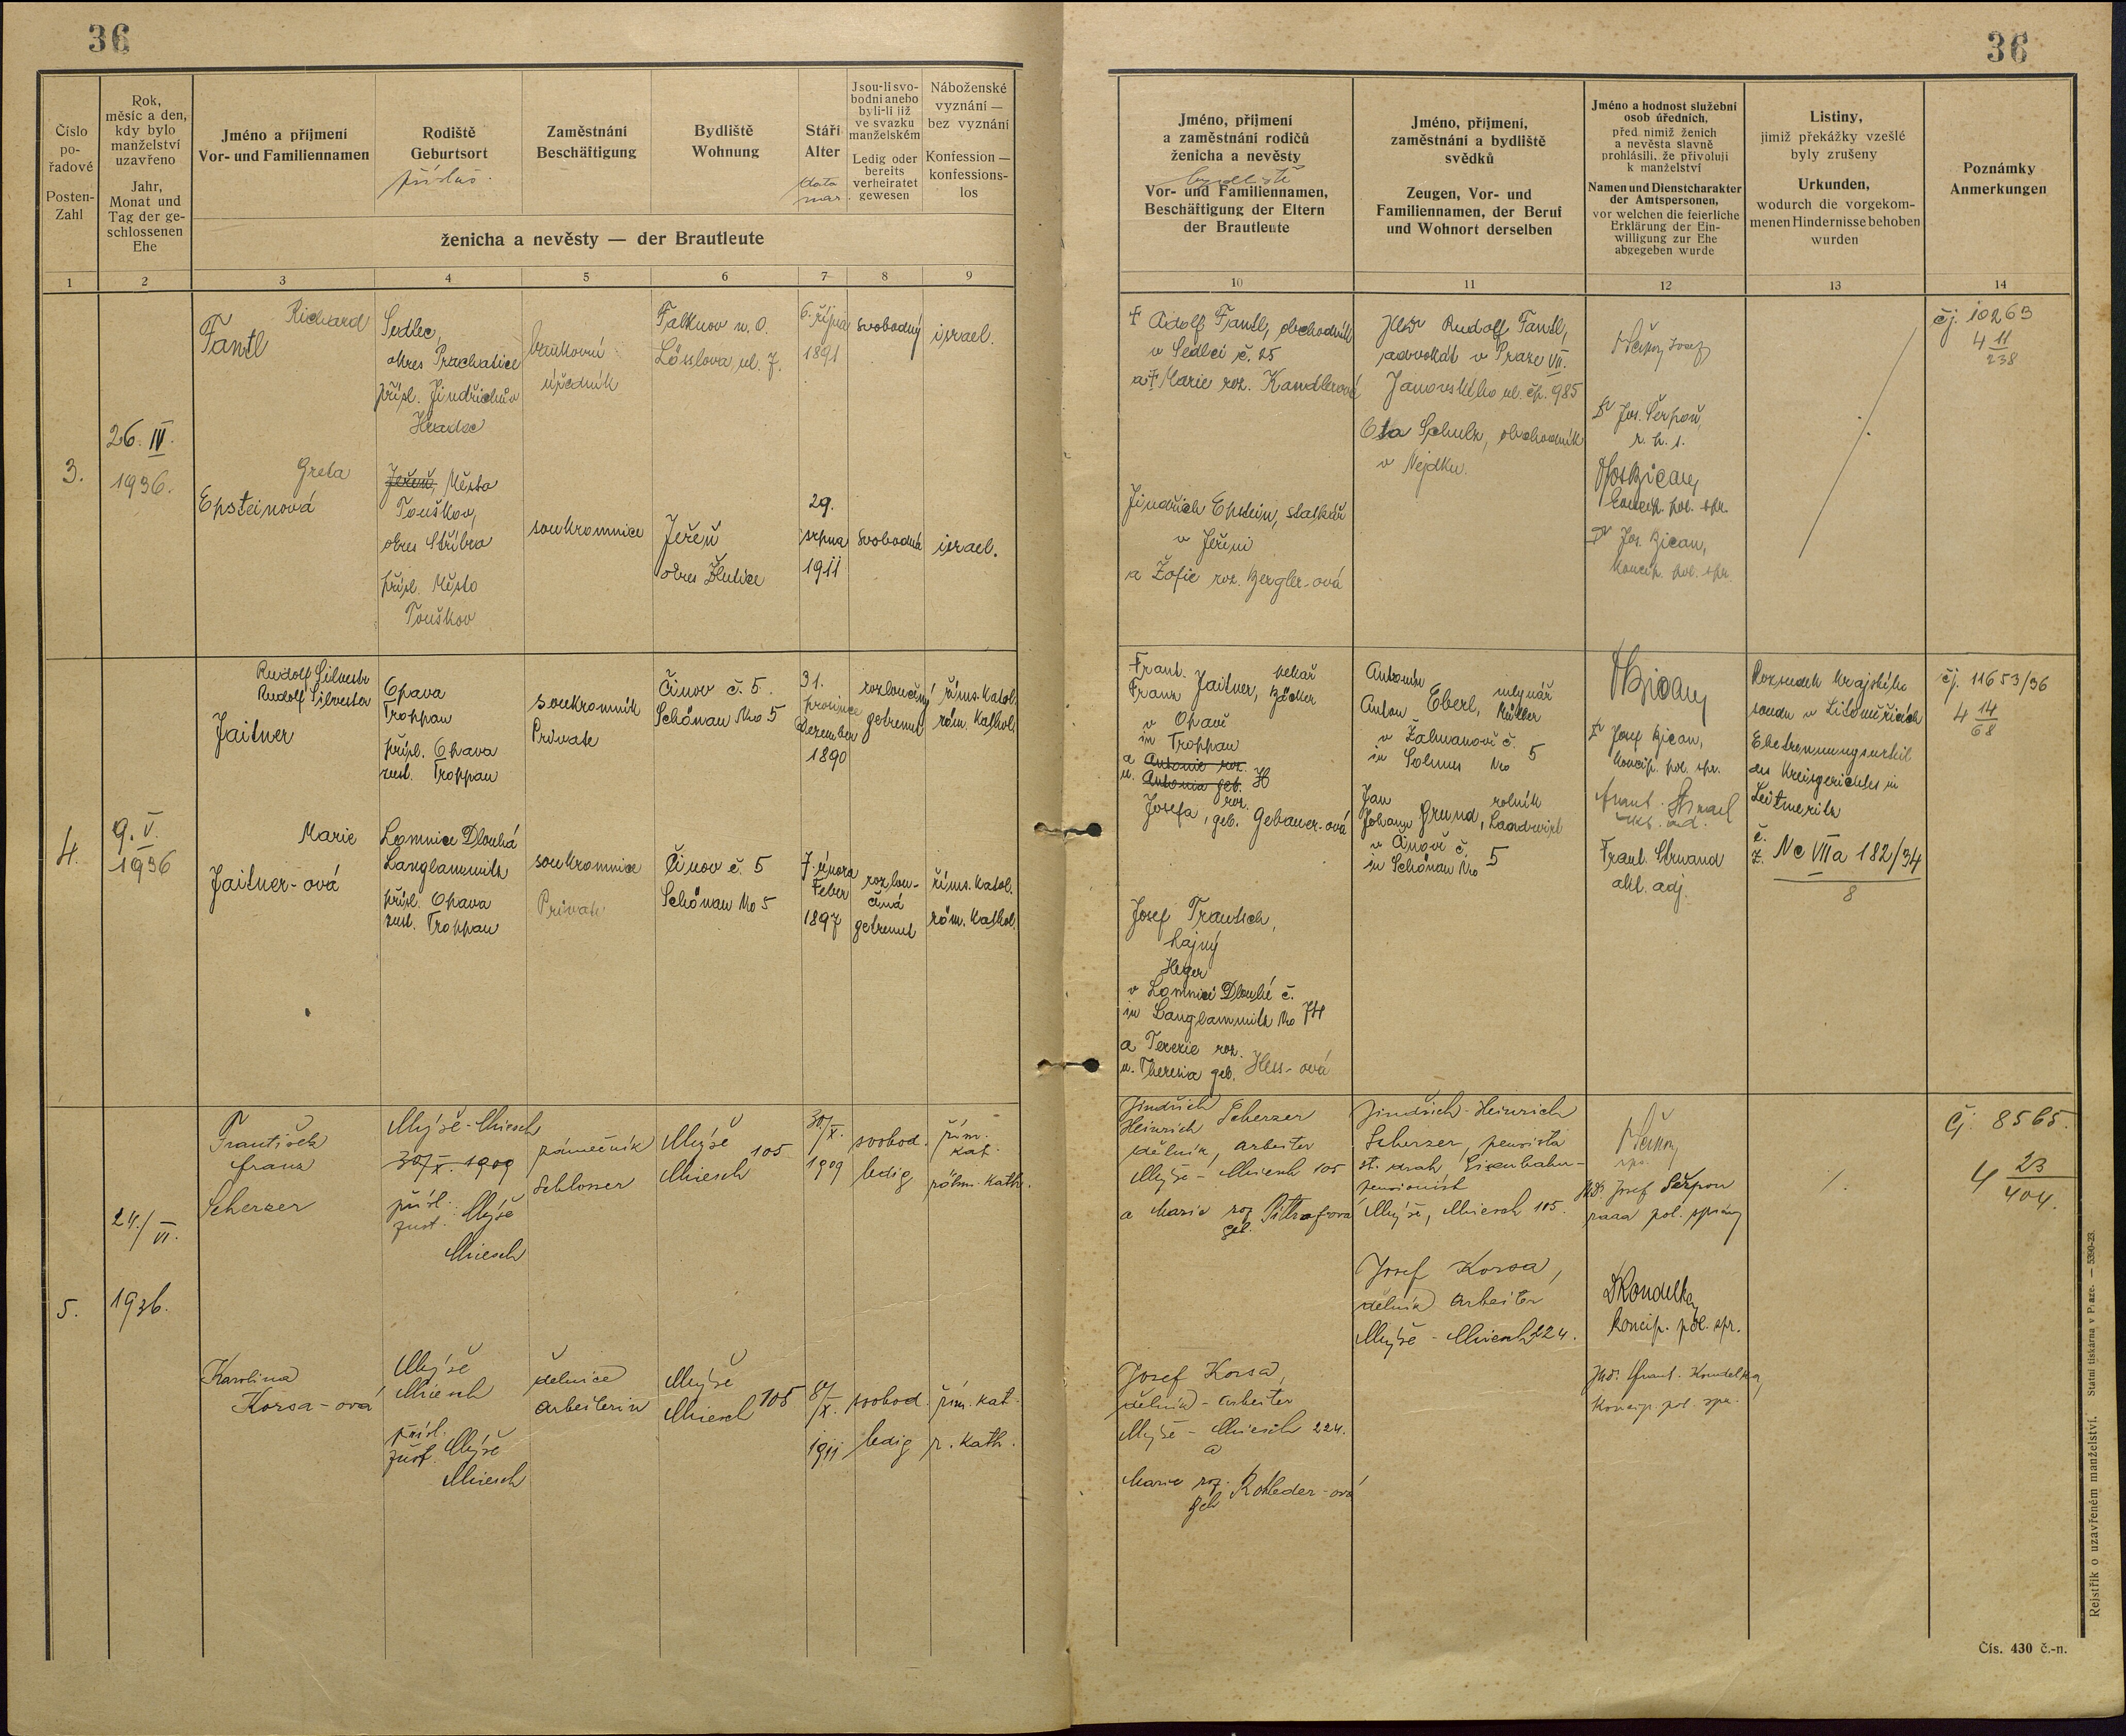 36
36
Číslo
po-
řadové
Posten-
Zahl
Rok,
měsíc a den,
kdy bylo
manželství
uzavřeno
Jahr,
Monat und
Tag der ge-
schlossenen
Ehe
Jméno a příjmení
Vor- und Familiennamen
Rodiště
Geburtsort
přísluš.
Zaměstnání
Beschäftigung
Bydliště
Wohnung
Stáří
Alter
data
nar.
Jsou-li svo-
bodni anebo
byli-li již
ve svazku
manželském
Ledig oder
bereits
verheiratet
gewesen
Náboženské
vyznání —
bez vyznání
Konfession —
konfessions-
los
ženicha a nevěsty — der Brautleute
Jméno, příjmení
a zaměstnání rodičů
ženicha a nevěsty
bydliště
Vor- und Familiennamen,
Beschäftigung der Eltern
der Brautleute
Jméno, příjmení,
zaměstnání a bydliště
svědků
Zeugen, Vor- und
Familiennamen, der Beruf
und Wohnort derselben
Jméno a hodnost služební
osob úředních,
před nimiž ženich
a nevěsta slavně
prohlásili, že přivolují
k manželství
Namen und Dienstcharakter
der Amtspersonen,
vor welchen die feierliche
Erklärung der Ein-
willigung zur Ehe
abgegeben wurde
Listiny,
jimiž překážky vzešlé
byly zrušeny
Urkunden,
wodurch die vorgekom-
menen Hindernisse behoben
wurden
Poznámky
Anmerkungen
1 2 3 4 5 6 7 8 9 10 11 12 13 14
3.
26. IV.
1936.
Richard
Fantl
Sedlec,
okres Prachatice
přísl. Jindřichův
Hradec
bankovní
úředník
Falknov n. O.
Lösslova ul. 7.
6. října
1891
svobodný
israel.
† Adolf Fantl, obchodník
v Sedlci č. 25
a † Marie roz. Kandlerová
JUDr Rudolf Fantl,
advokát v Praze VII.
Janovského ul. čp. 985
Ota Schulz, obchodník
v Nejdku.
Dr Jos. Šerpoň,
r. p. s.
koncip. pol. spr.
Dr Jos. Bican,
koncip. pol. spr.
čj. 10263
4 11
238
Greta
Epsteinová
Jeřeň, Město
Touškov,
okres Stříbro
přísl. Město
Touškov
soukromnice
Jeřeň
okres Žlutice
29.
srpna
1911
svobodná
israel.
Jindřich Epstein, statkář
v Jeřeni
a Žofie roz. Bergler-ová
4.
9. V.
1936
Rudolf Silvestr
Rudolf Silvester
Jaitner
Opava
Troppau
přísl. Opava
zust. Troppau
soukromník
Private
Činov č. 5.
Schönau No 5
31.
prosince
Dezember
1890
rozloučený
getrennt
říms. katol.
röm. kathol.
Frant. Jaitner, pekař
Franz Bäcker
v Opavě
in Troppau
a Antonie roz.
u. Antonia geb. H
Josefa roz.
geb. Gebauer-ová
Antonín Eberl, mlynář
Anton Müller
v Žalmanově č. 5
in Solmus No
Jan Grund, rolník
Johann Landwirt
v Činově č. 5
in Schönau No
Dr Josef Bican,
koncip. pol. spr.
Frant. Strnad
akt. adj.
Rozsudek krajského
soudu v Litoměřicích
Ehetrennungsurteil
des Kreisgerichtes in
Leitmeritz
č.
Z. Nc VIIa 182/34
8
čj. 11653/36
4 14
68
Marie
Jaitner-ová
Lomnice Dlouhá
Langlammitz
přísl. Opava
zust. Troppau
soukromnice
Private
Činov č. 5
Schönau No 5
7. února
Feber
1897
rozlou-
čená
getrennt
říms. katol.
röm. kathol.
Josef Trautsch,
hajný
Heger
v Lomnici Dlouhé č.
in Langlammitz No 74
a Terezie roz.
u. Theresia geb. Hess-ová
5.
24./VI.
1936.
František
Franz
Scherzer
Mýše-Miesch
30/X. 1909
přísl.
zust. Mýše
Miesch
zámečník
Schlosser
Mýše
Miesch 105
30/X.
1909
svobod.
ledig
řím.
kat.
röm. kath.
Jindřich Scherzer
Heinrich
dělník, Arbeiter
Mýše - Miesch 105
a Marie roz.
geb.
Jindřich-Heinrich
Scherzer, pensista
st. drah, Eisenbahn-
pensionist
Mýše, Miesch 105.
Josef Korsa,
dělník Arbeiter
Mýše - Miesch 224.
JUDr. Josef Šerpoň
rada pol. správy
DrKondelka
koncip. pol. spr.
JUDr. Frant. Kondelka,
koncip. pol. spr.
Čj. 8565.
4 23
404.
Karolina
Korsa-ová
Mýše
Miesch
přísl.
zust. Mýše
Miesch
dělnice
Arbeiterin
Mýše
Miesch 105
8/X.
1911
svobod.
ledig
řím. kat.
r. kath.
Josef Korsa,
dělník - Arbeiter
Mýše - Miesch 224.
a
Marie roz.
geb. Rohleder-ová
Rejstřík o uzavřeném manželství. Státní tiskárna v Praze. — 5390-23.
Čís. 430 č.-n.